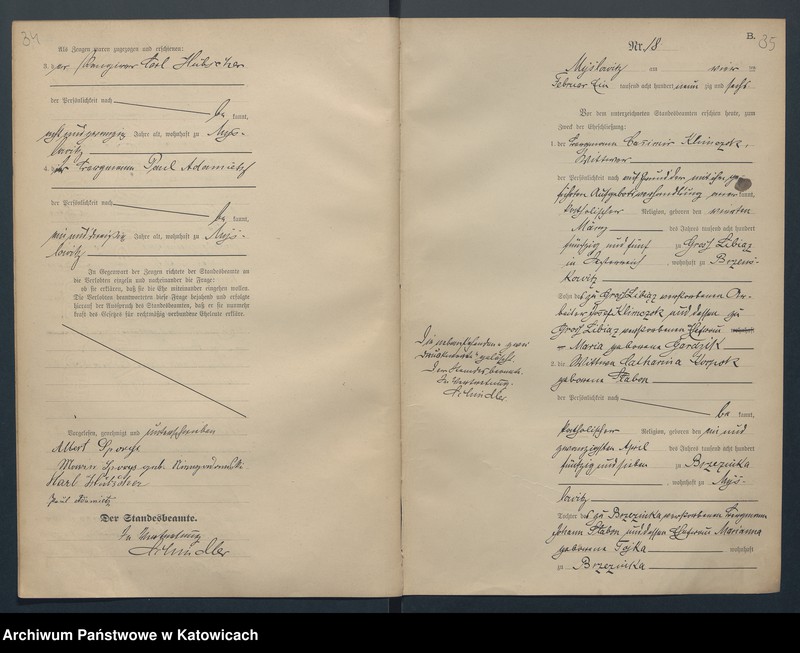 34
Als Zeugen waren zugezogen und erschienen:
3. der Karl Hübscher
der Persönlichkeit nach
be kannt,
acht und zwanzig Jahre alt, wohnhaft zu Mys-
lowitz
4. der Bergmann Paul Adamietz
der Persönlichkeit nach
be kannt,
ein und dreißig Jahre alt, wohnhaft zu Mys-
lowitz
In Gegenwart der Zeugen richtete der Standesbeamte an
die Verlobten einzeln und nacheinander die Frage:
ob sie erklären, daß sie die Ehe miteinander eingehen wollen.
Die Verlobten beantworteten diese Frage bejahend und erfolgte
hierauf der Ausspruch des Standesbeamten, daß er sie nunmehr
kraft des Gesetzes für rechtmäßig verbundene Eheleute erkläre.
Vorgelesen, genehmigt und unterschrieben
Albert
geb.
Karl Hübscher
Paul Adamietz
Der Standesbeamte.
In Vertretung
Schindler
B.
35
Nr. 18
Myslowitz am vier ten
Februar ein tausend acht hundert neun zig und sechs
Vor dem unterzeichneten Standesbeamten erschien heute, zum
Zweck der Eheschließung:
1. der Bergmann Casimir Klimczok,
Wittwer
der Persönlichkeit nach auf Grund der mit ihm ge-
führten Aufgebotsverhandlung aner kannt,
katholischer Religion, geboren den vierten
März des Jahres tausend acht hundert
fünfzig und fünf zu Groß Libiaz
in Oesterreich, wohnhaft zu Brzens-
kowitz
Sohn des zu Groß Libiaz verstorbenen Ar-
beiter Josef Klimczok und dessen zu
Groß Libiaz verstorbenen Ehefrau
Maria geborene Gardzik
2. die Wittwe Catharina
geborene Stabon
der Persönlichkeit nach
be kannt,
katholischer Religion, geboren den ein und
zwanzigsten April des Jahres tausend acht hundert
fünfzig und sieben zu Brzezinka
, wohnhaft zu Mys-
lowitz
Tochter des zu Brzezinka verstorbenen Bergmann
Johann Stabon und dessen Ehefrau Marianna
geborene Fojka wohnhaft
zu Brzezinka
Die nebenstehenden zwei
Druckworte gelöscht.
Der Standesbeamte.
In Vertretung.
Schindler.
Archiwum Państwowe w Katowicach